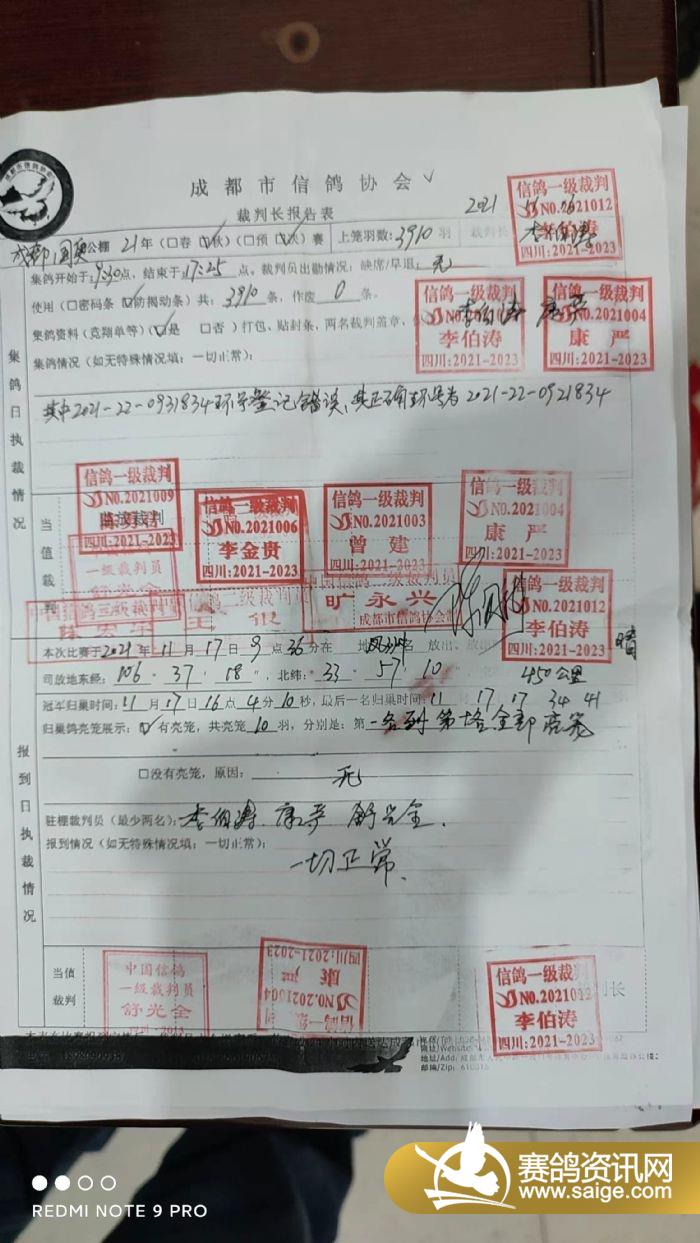 成都市信鸽协会
成都市信鸽协会
裁判长报告表
2021
信鸽一级裁判
NO.2021012
李伯涛
四川:2021-2023
公棚 21年(□春 □秋)(□预 □决)赛 上笼羽数:3910羽 裁判长
集鸽开始于:9:30点,结束于17:25点。裁判员出勤情况:缺席/早退:无
使用(□密码条 □防揭动条)共:3910条,作废0条。
集鸽资料(竞翔单等)(□是 □否)打包、贴封条,两名裁判盖章,
集鸽情况(如无特殊情况填:一切正常):
信鸽一级裁判
李伯涛
四川:2021-2023
信鸽一级裁判
NO.2021004
康严
四川:2021-2023
集鸽日执裁情况
其中2021-22-0931834环号登记错误,其正确环号为2021-22-0921834
当值裁判
信鸽一级裁判
NO.2021009
四川:2021-2023
信鸽一级裁判
NO.2021006
李金贵
四川:2021-2023
信鸽一级裁判
NO.2021003
曾建
四川:2021-2023
信鸽一级裁判
NO.2021004
康严
四川:2021-2023
一级裁判员
舒光全
中国信鸽一级裁判员
旷永兴
成都市信鸽协会
信鸽一级裁判
NO.2021012
李伯涛
四川:2021-2023
本次比赛于2021年11月17日9点36分在 地 名 放出。 晴
司放地东经:106°37′18″,北纬:33°57′10″ 450公里
冠军归巢时间:11月17日16点4分10秒,最后一名归巢时间:11月17 17 34 41
归巢鸽亮笼展示:□有亮笼,共亮笼10羽,分别是:第一名到第十名全部亮笼
□没有亮笼,原因:无
报到日执裁情况
驻棚裁判员(最少两名):李伯涛、康严 舒光全
报到情况(如无特殊情况填:一切正常):
一切正常
当值裁判
中国信鸽
一级裁判员
舒光全
信鸽一级裁判
NO.2021004
康严
四川:2021-2023
信鸽一级裁判
NO.2021012
李伯涛
四川:2021-2023
REDMI NOTE 9 PRO
赛鸽资讯网
www.saige.com